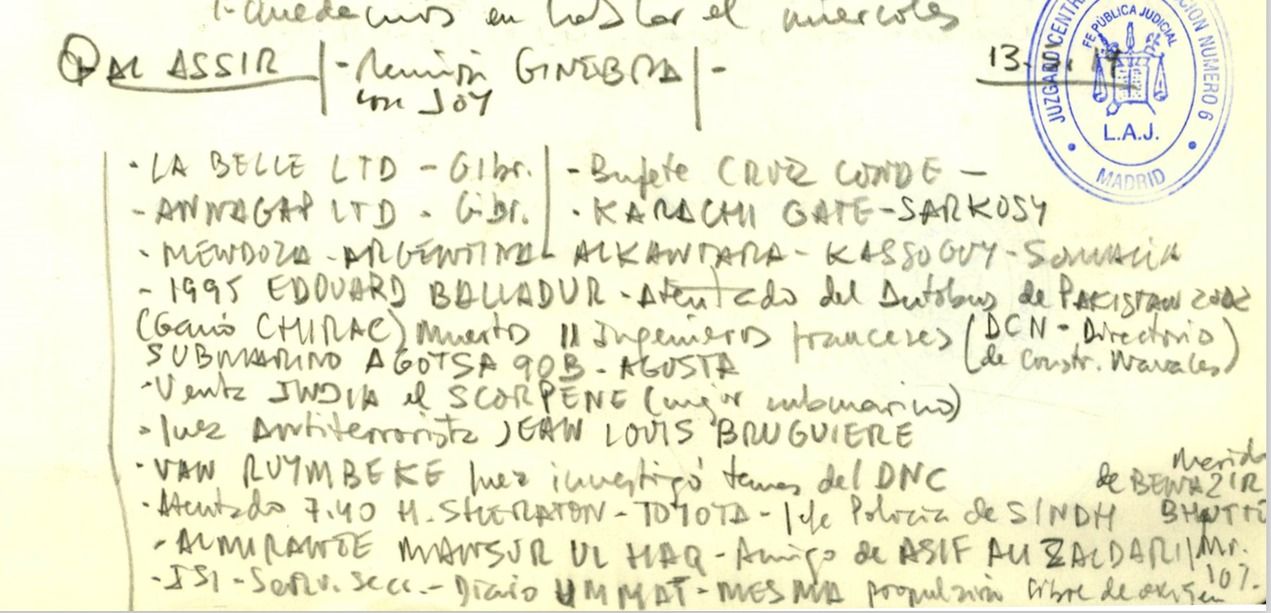 - Quedamos en hablar el miércoles
AL ASSIR | - Reunión GINEBRA | -
con JOY
13.
· LA BELLE LTD - Gibr. | - Bufete CRUZ CONDE -
- ANNAGAP LTD - Gibr. | · KARACHI GATE - SARKOSY
· MENDOZA - ARGENTINA - ALKANTARA - KASSOGUY - Somalia
- 1995 EDOUARD BALLADUR - Atentado del Autobus de PAKISTAN 2002
(Ganó CHIRAC) Muertos 11 Ingenieros franceses (DCN - Directorio
de Constr. Navales)
SUBMARINO AGOTSA 90B - AGUSTA
· Venta INDIA el SCORPENE (mejor submarino)
· Juez Antiterrorista JEAN LOUIS BRUGUIERE
· VAN RUYMBEKE Juez investigó temas del DNC
· Atentado 7.40 H. SHERATON - TOYOTA - Jefe Policia de SINDH
· ALMIRANTE MANSUR UL HAQ - Amigo de ASIF ALI ZALDARI | Mr.
10%.
marido
de BENAZIR
BHUTTO
- ISI - Serv. Secr. - Diario UMMAT - MESMA propulsión libre de oxigen
JUZGADO CENTRAL
INSTRUCCION NUMERO 6
FE PÚBLICA JUDICIAL
L.A.J.
MADRID